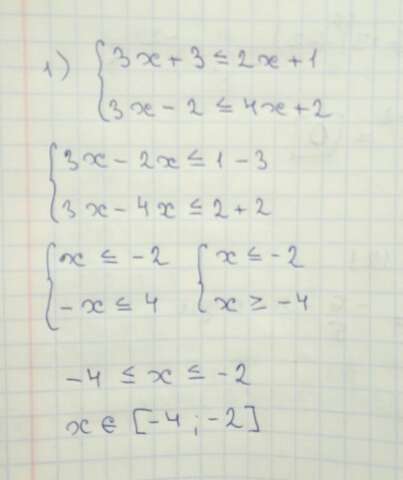 1) { 3x + 3 ≤ 2x + 1
3x - 2 ≤ 4x + 2
{ 3x - 2x ≤ 1 - 3
3x - 4x ≤ 2 + 2
{ x ≤ -2 { x ≤ -2
-x ≤ 4 x ≥ -4
-4 ≤ x ≤ -2
x ∈ [-4 ; -2]